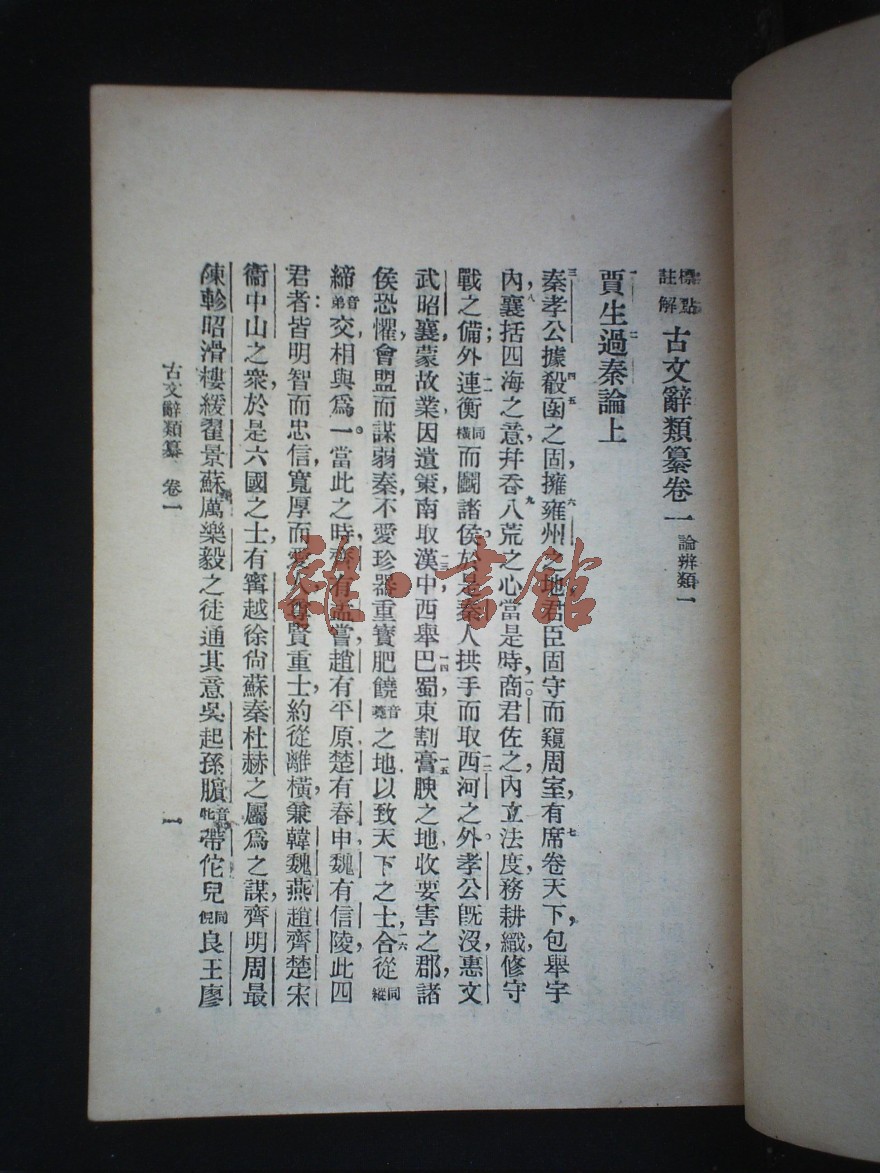 標點註解 古文辭類纂卷一 論辨類一
一 二
賈生過秦論上
三 四 五 六 七
秦孝公據殽函之固，擁雍州之地，君臣固守而窺周室，有席卷天下，包舉宇
八 九 一〇
內，囊括四海之意，幷吞八荒之心。當是時，商君佐之，內立法度，務耕織，修守
一一 一二
戰之備；外連衡同橫而鬭諸侯，於是秦人拱手而取西河之外。孝公旣沒，惠文
一三 一四 一五
武昭襄，蒙故業，因遺策，南取漢中，西舉巴蜀，東割膏腴之地，收要害之郡，諸
一六
侯恐懼，會盟而謀弱秦，不愛珍器重寶肥饒之地，以致天下之士，合從同縱
締音弟交，相與爲一。當此之時，齊有孟嘗，趙有平原，楚有春申，魏有信陵，此四
君者：皆明智而忠信，寬厚而愛人，尊賢重士，約從離橫，兼韓魏燕趙齊楚宋
衞中山之衆，於是六國之士，有甯越徐尙蘇秦杜赫之屬爲之謀，齊明周最
陳軫昭滑樓緩翟景蘇厲樂毅之徒通其意，吳起孫臏帶佗兒同倪良王廖
古文辭類纂 卷一 一
雜·書館